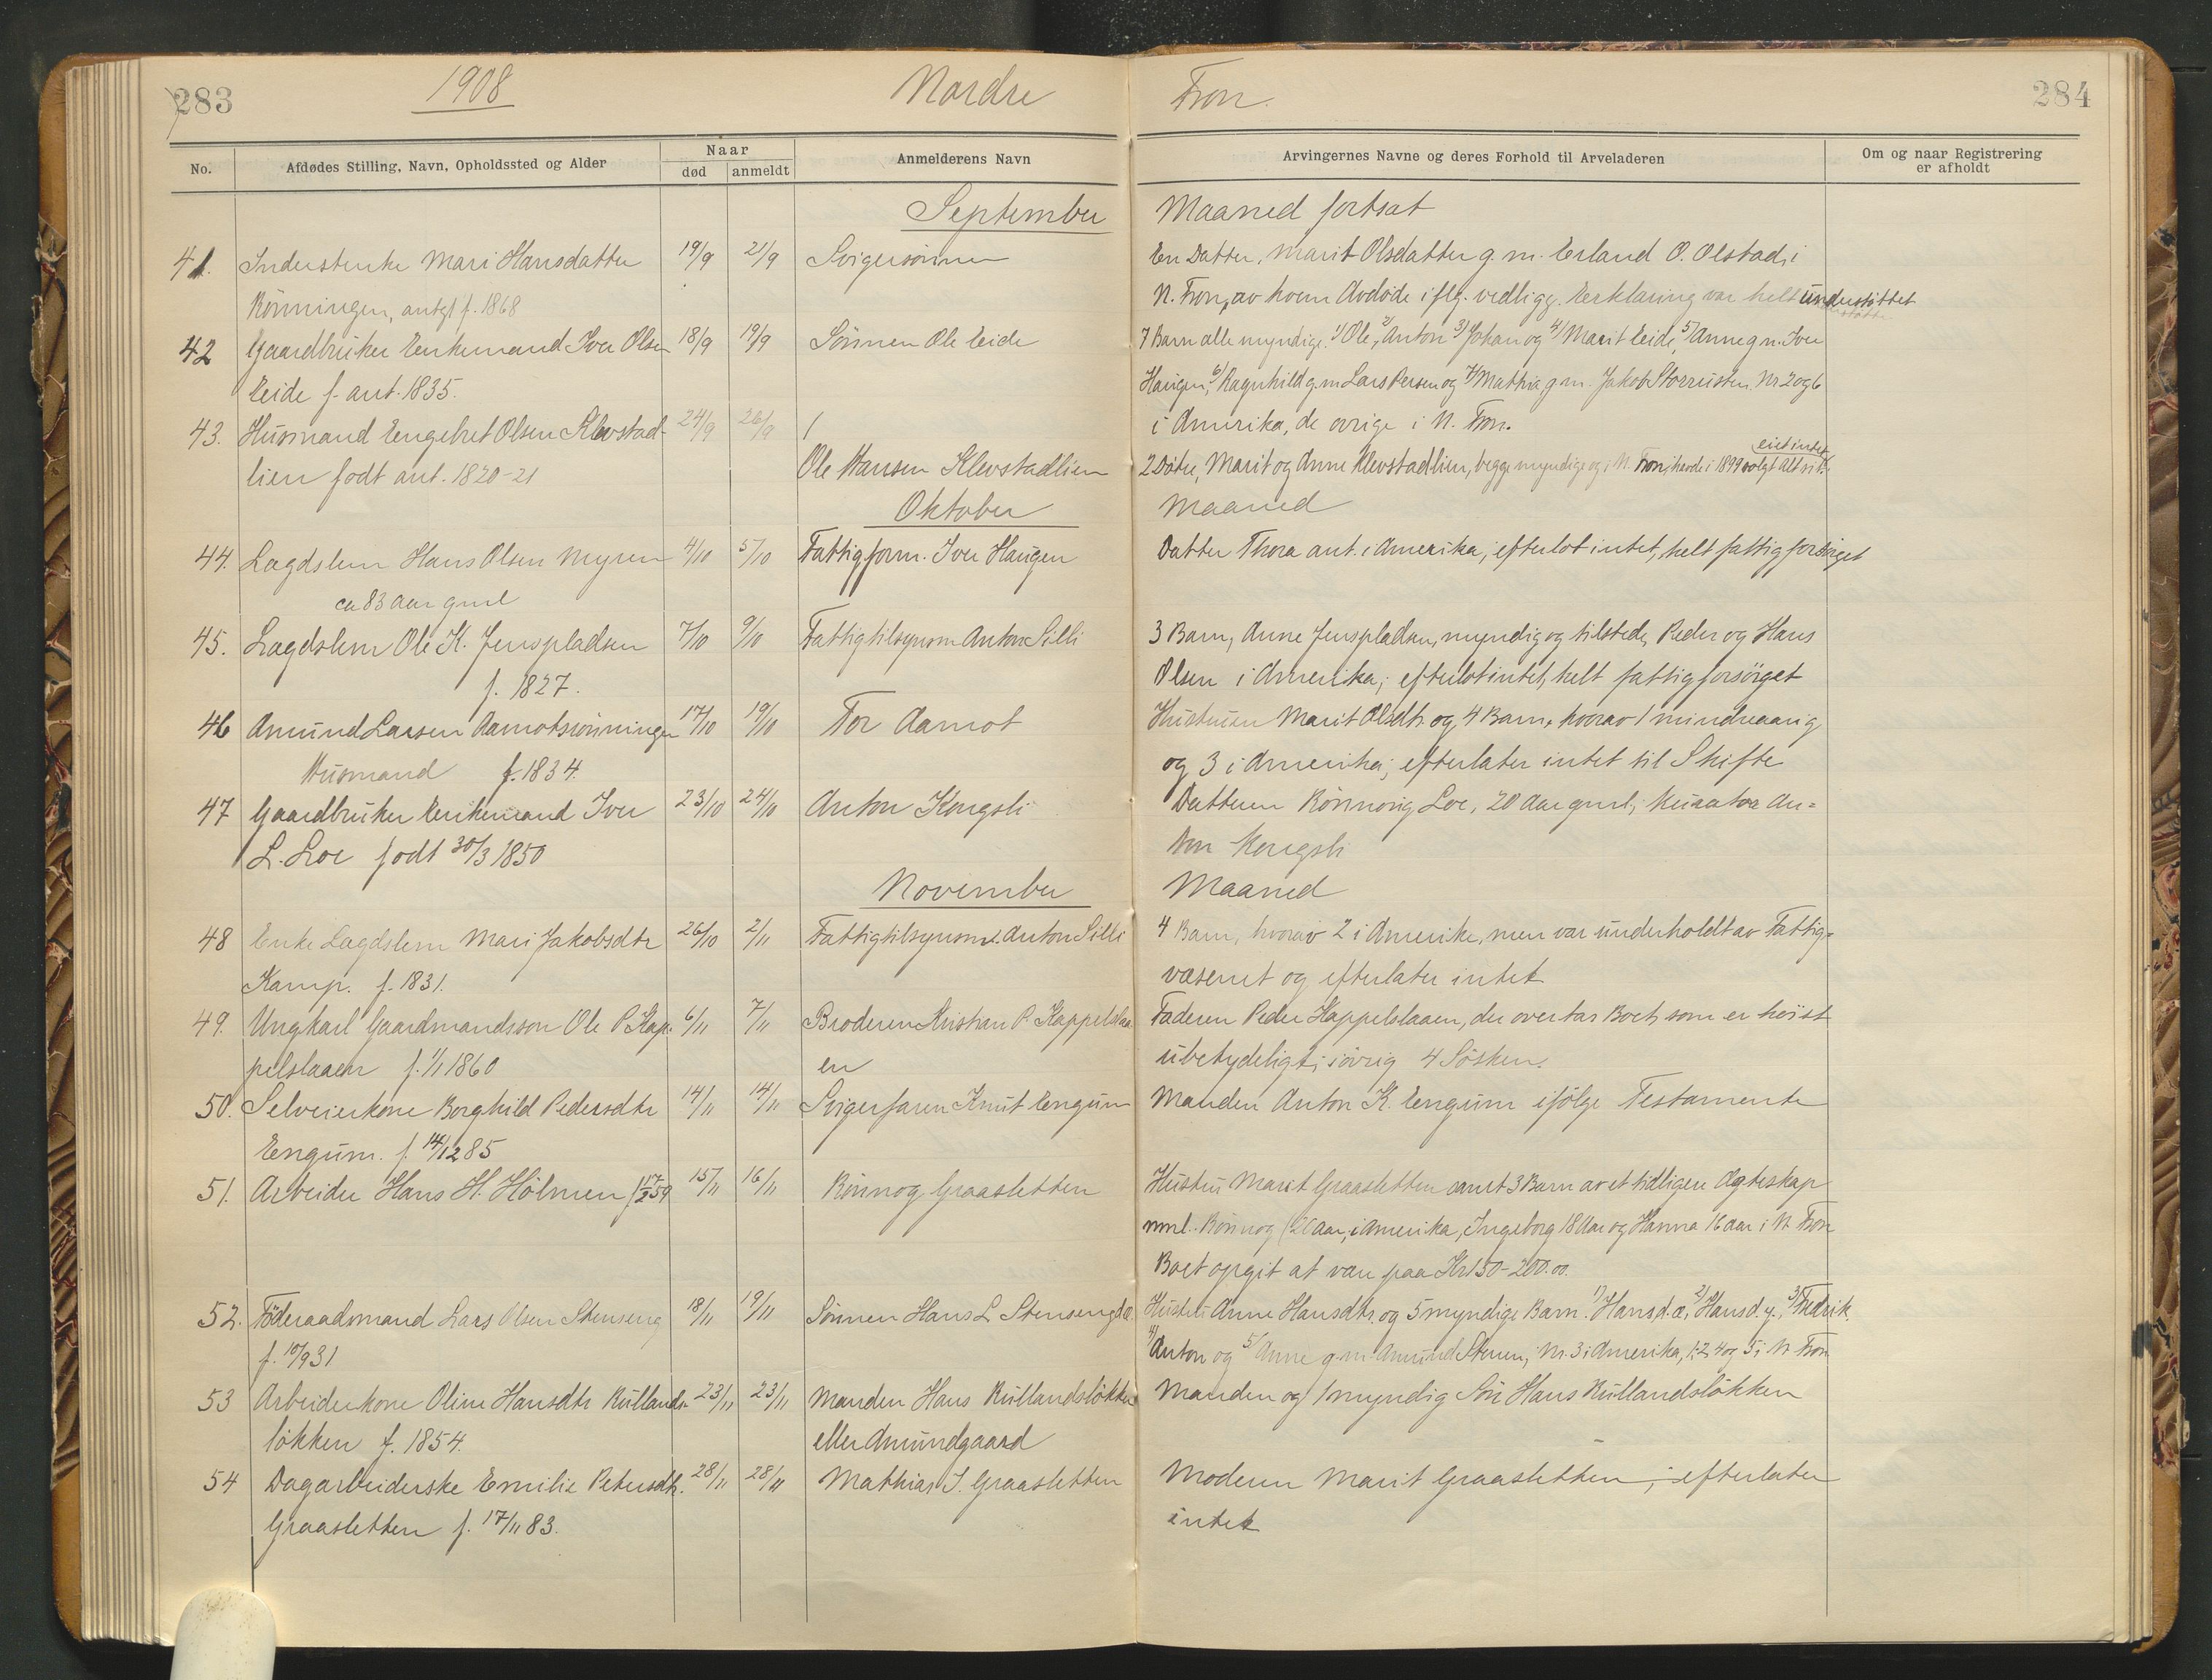 283
1908
Nordre
Fron.
284
No.
Afdødes Stilling, Navn, Opholdssted og Alder
Naar
død
anmeldt
Anmelderens Navn
Arvingernes Navne og deres Forhold til Arveladeren
Om og naar Registrering
er afholdt
September
Maaned fortsat
41. Inderstenke Mari Hansdatter 19/9 21/9 Svigersønnen
En Datter, Marit Olsdatter g. m. Erland O. Olstad, i
Rönningen, antgl f. 1868
N. Fron, av hvem Avdøde iflg. vedligg. Erklæring var helt understöttet
42 Gaardbruker Enkemand Iver Olsen 18/9 19/9 Sönnen Ole Eide
7 Barn alle myndige. 1/ Ole, 2/ Anton 3/ Johan og 4/ Marit Eide, 5/ Anne g.m. Iver
Eide f. ant. 1835.
Haugen, 6/ Ragnhild g.m Lars Persen og 7/ Mathia g.m. Jakob Storrusten, Nr 2 og 6
43. Husmand Engebret Olsen Klevstad- 24/9 26/9
i Amerika, de øvrige i N. Fron.
lien født ant. 1820-21
Ole Hansen Klevstadlien
eiet intet
2 Döttre, Marit og Anne Klevstadlien, begge myndige og i N. Fron, havde i 1899 solgt alt sit.
Oktober
Maaned
44. Lægdslem Hans Olsen Myren 4/10 5/10 Fattigform. Iver Haugen
Datter Thora ant. i Amerika; efterlot intet, helt fattigforsörget
ca 83 Aar gml
45. Lægdslem Ole K. Jenspladsen 7/10 9/10 Fattigtilsynsm Anton Silli
3 Barn, Anne Jenspladsen, myndig og tilstede, Peder og Hans
f. 1827.
Olsen i Amerika; efterlot intet, helt fattigforsörget
46 Amund Larsen Aamotsrönningen 17/10 19/10 Tor Aamot
Hustruen Marit Olsdtr. og 4 Barn, hvorav 1 mindreaarig
Husmand f. 1834.
og 3 i Amerika; efterlater intet til Skifte
47 Gaardbruker Enkemand Iver 23/10 24/10 Anton Kongsli
Datteren Rönnoug Loe, 20 Aar gml; Kurator An=
L. Loe født 30/3 1850
ton Kongsli
November
Maaned
48 Enke Lægdslem Mari Jakobsdtr 26/10 2/11 Fattigtilsynsm. Anton Silli
4 Barn, hvorav 2 i Amerika, men var underholdt av Fattig=
Kamp. f. 1831.
væsenet og efterlater intet
49. Ungkarl Gaardmandsson Ole P. Kap- 6/11 7/11 Broderen Kristian P. Kappelslaa
Faderen Peder Kappelslaaen, der overtar Boet, som er höist
pelslaaen f. 1/11 1860
en
ubetydeligt; iövrig 4 Sösken.
50. Selveierkone Borghild Pedersdtr 14/11 14/11 Svigerfaren Knut Engum
Manden Anton K. Engum ifölge Testamente
Engum. f. 14/12 85
51. Arbeider Hans H. Hölmen f 17/2 59 15/11 16/11 Rönnog Graasletten
Hustru Marit Graasletten samt 3 Barn av et tidligere Ægteskap
nml. Rönnog (20 aar, i Amerika, Ingeborg 18 Aar og Hanna 16 aar i N. Fron
Boet opgit at være paa Kr 150-200.00.
52. Föderaadsmand Lars Olsen Stenseng 18/11 19/11 Sönnen Hans L. Stenseng d.æ.
Hustru Anne Hansdtr. og 5 myndige Barn 1/ Hans d. æ., 2/ Hans d. y., 3/ Fredrik,
f. 10/9 31
4/ Anton og 5/ Anne g.m. Amund Stenen, Nr. 3 i Amerika, 1, 2, 4 og 5 i N. Fron
53 Arbeiderkone Oline Hansdtr Rullands- 23/11 23/11 Manden Hans Rullandslökken
Manden og 1 myndig Sön Hans Rullandslökken
lökken f. 1854.
eller Amundgaard
54 Dagarbeiderske Emilie Petersdtr. 28/11 28/11 Mathias J. Graasletten
Moderen Marit Graasletten; efterlater
Graasletten f. 17/11 83.
intet